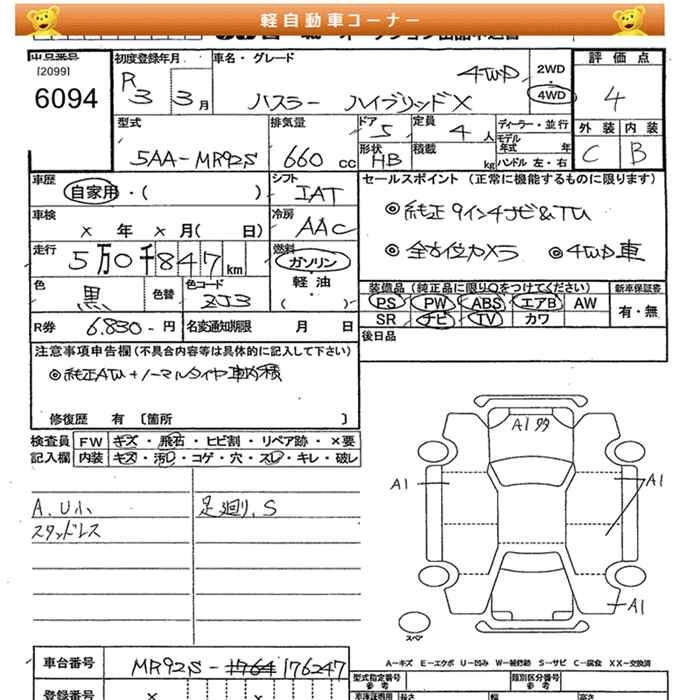 軽自動車コーナー
[2099]
6094
初度登録年月
R
3 3月
車名・グレード
4WD
ハスラー ハイブリッドX
2WD
4WD
評価点
4
外装 内装
C B
型式
5AA-MR92S
排気量
660 cc
ドア
5
形状
HB
定員
4 人
積載
kg
ディーラー・並行
モデル年式 年
ハンドル 左・右
車歴
自家用・( )
シフト
IAT
車検
× 年 × 月( 日)
冷房
AAC
走行
5万0千847km
燃料
ガソリン
軽油
( )
色
黒
色替
色コード
ZJ3
R券 6,830-円
名変通知期限 月 日
セールスポイント (正常に機能するものに限ります)
◎純正9インチナビ&TV
◎全方位カメラ ◎4WD車
装備品(純正品に限り○をつけてください) 新車保証書
PS PW ABS エアB AW
SR ナビ TV カワ
有・無
後日品
注意事項申告欄(不具合内容等は具体的に記入して下さい)
◎純正AW+ノーマルタイヤ車内積
修復歴 有 〔箇所 〕
検査員 FW キズ・飛石・ヒビ割・リペア跡・×要
記入欄 内装 キズ・汚レ・コゲ・穴・スレ・キレ・破レ
A.U小
スタッドレス
足廻り.S
A1多
A1
A1
A1
スペア
A-キズ E-エクボ U-凹み W-補修跡 S-サビ C-腐食 XX-交換済
車台番号
MR92S-1764 176247
登録番号
× ×
型式指定番号
参考
類別区分番号
参考
長さ 幅 高さ